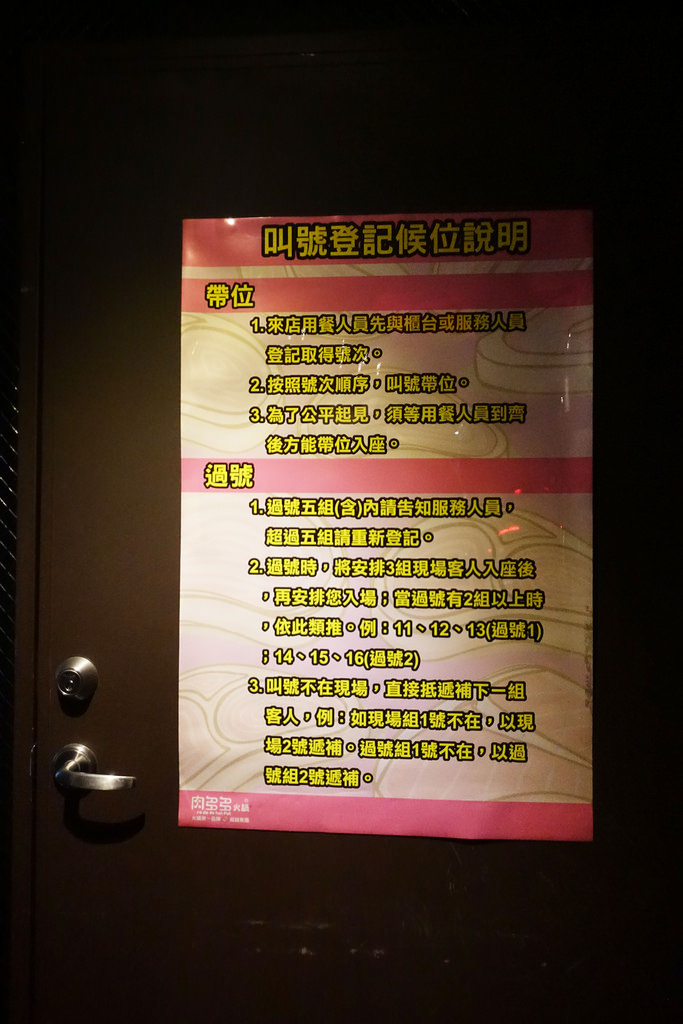 叫號登記候位說明
帶位
1.來店用餐人員先與櫃台或服務人員
登記取得號次。
2.按照號次順序，叫號帶位。
3.為了公平起見，須等用餐人員到齊
後方能帶位入座。
過號
1.過號五組(含)內請告知服務人員，
超過五組請重新登記。
2.過號時，將安排3組現場客人入座後
，再安排您入場；當過號有2組以上時
，依此類推。例：11、12、13(過號1)
；14、15、16(過號2)
3.叫號不在現場，直接抵遞補下一組
客人，例：如現場組1號不在，以現
場2號遞補。過號組1號不在，以過
號組2號遞補。
肉多多火鍋